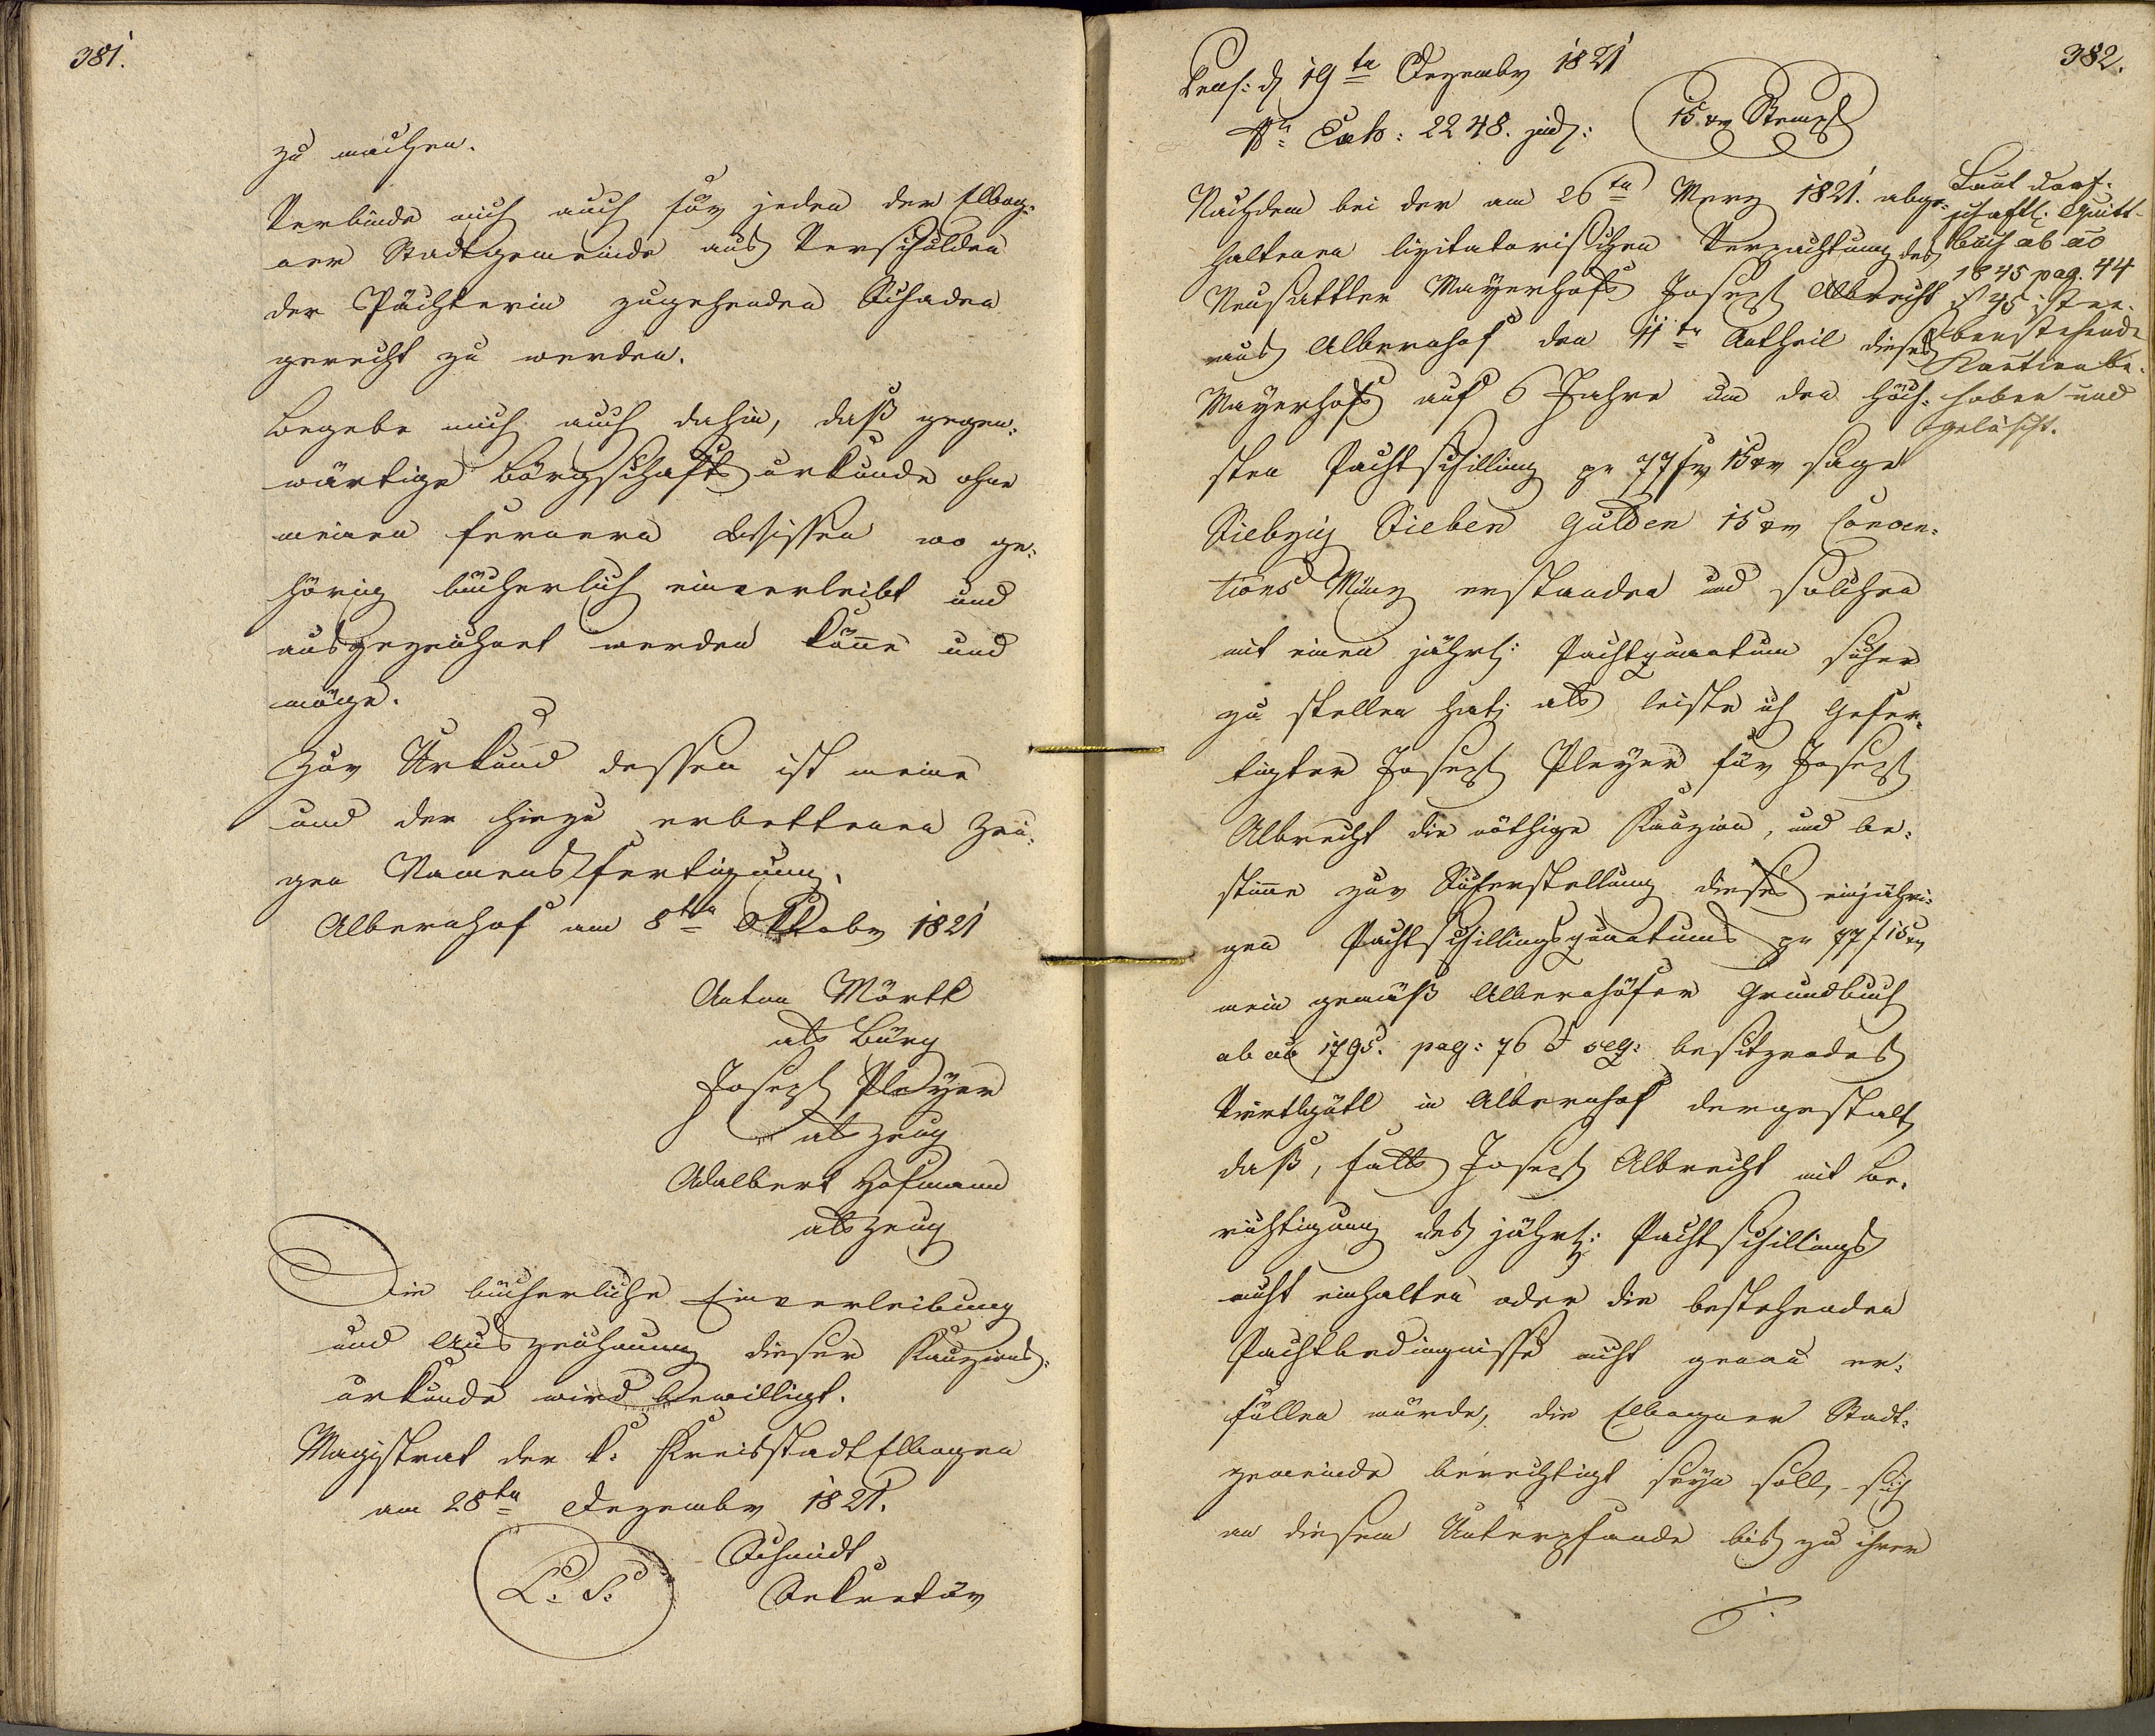 381.
zu machen.
Verbinde mich auch für jeden der Elbog=
ner Stadtgemeinde aus Verschulden
der Pächterin zugehenden Schaden
gerecht zu werden.
Begebe mich auch dahin, daß gegen=
wärtige Börgschaftsurkunde ohne
meinen fernern Beisissen wo ge=
hörig bücherlich einverleibt und
ausgezeichnet werden könne und
möge.
Zur Urkund dessen ist meine
und der hiezu erbettenen Zeu=
gen Namensfertigung.
Albernhof am 8ten Oktober 1821
Anton Mörtl
als Bürg
Joseph Pleyer
als Zeug
Adalbert Hofmann
als Zeug
Die bücherliche Einverleibung
und Auszeichnung dieser Kauzions=
urkunde wird bewilligt.
Magistrat der k: Kreisstadt Elbogen
am 28ten Dezember 1821.
L. S.
Schmidt
Sekretär
382.
Præs: d 19ten Dezember 1821
Nr. Exh: 2248. jud:
15 xr Stempl
Nachdem bei der am 26ten Merz 1821. abge=
haltenen lizitatorischen Verpachtung des
Neusattler Mayerhofs Joseph Albrecht
aus Albernhof den 11ten Antheil dieses
Mayerhofs auf 6 Jahre um den höch=
sten Pachtschilling pr 77 fr 15 xr sage
Siebzig Sieben Gulden 15 xr Conven=
tions Münz erstanden und solchen
mit einen jährl: Pachtquantum sicher
zu stellen hat; als leiste ich Gefer=
tigter Joseph Pleyer für Joseph
Albrecht die nöthige Kauzion, und be=
stimme zur Sicherstellung dieses einjähri=
gen Pachtschillingsquantums pr 77 f 15 xr
mein gemäß Albernhöfer Grundbuch
ab ao 1795. pag: 76 & seq: besitzendes
Viertlgütl in Albernhof dergestalt,
daß, falls Joseph Albrecht mit Be=
richtigung des jährl: Pachtschillings
nicht einhalten oder die bestehenden
Pachtbedingnisse nicht genau er=
füllen würde, die Elbogner Stadt=
gemeinde berechtigt seyn soll, sich
an diesem Unterpfande bis zu ihrer
Laut
schaftl: Quitt=
buch ab ao
1845 pag. 44
& 45 ist
benstehende
Kaution be=
hoben und
gelöscht.